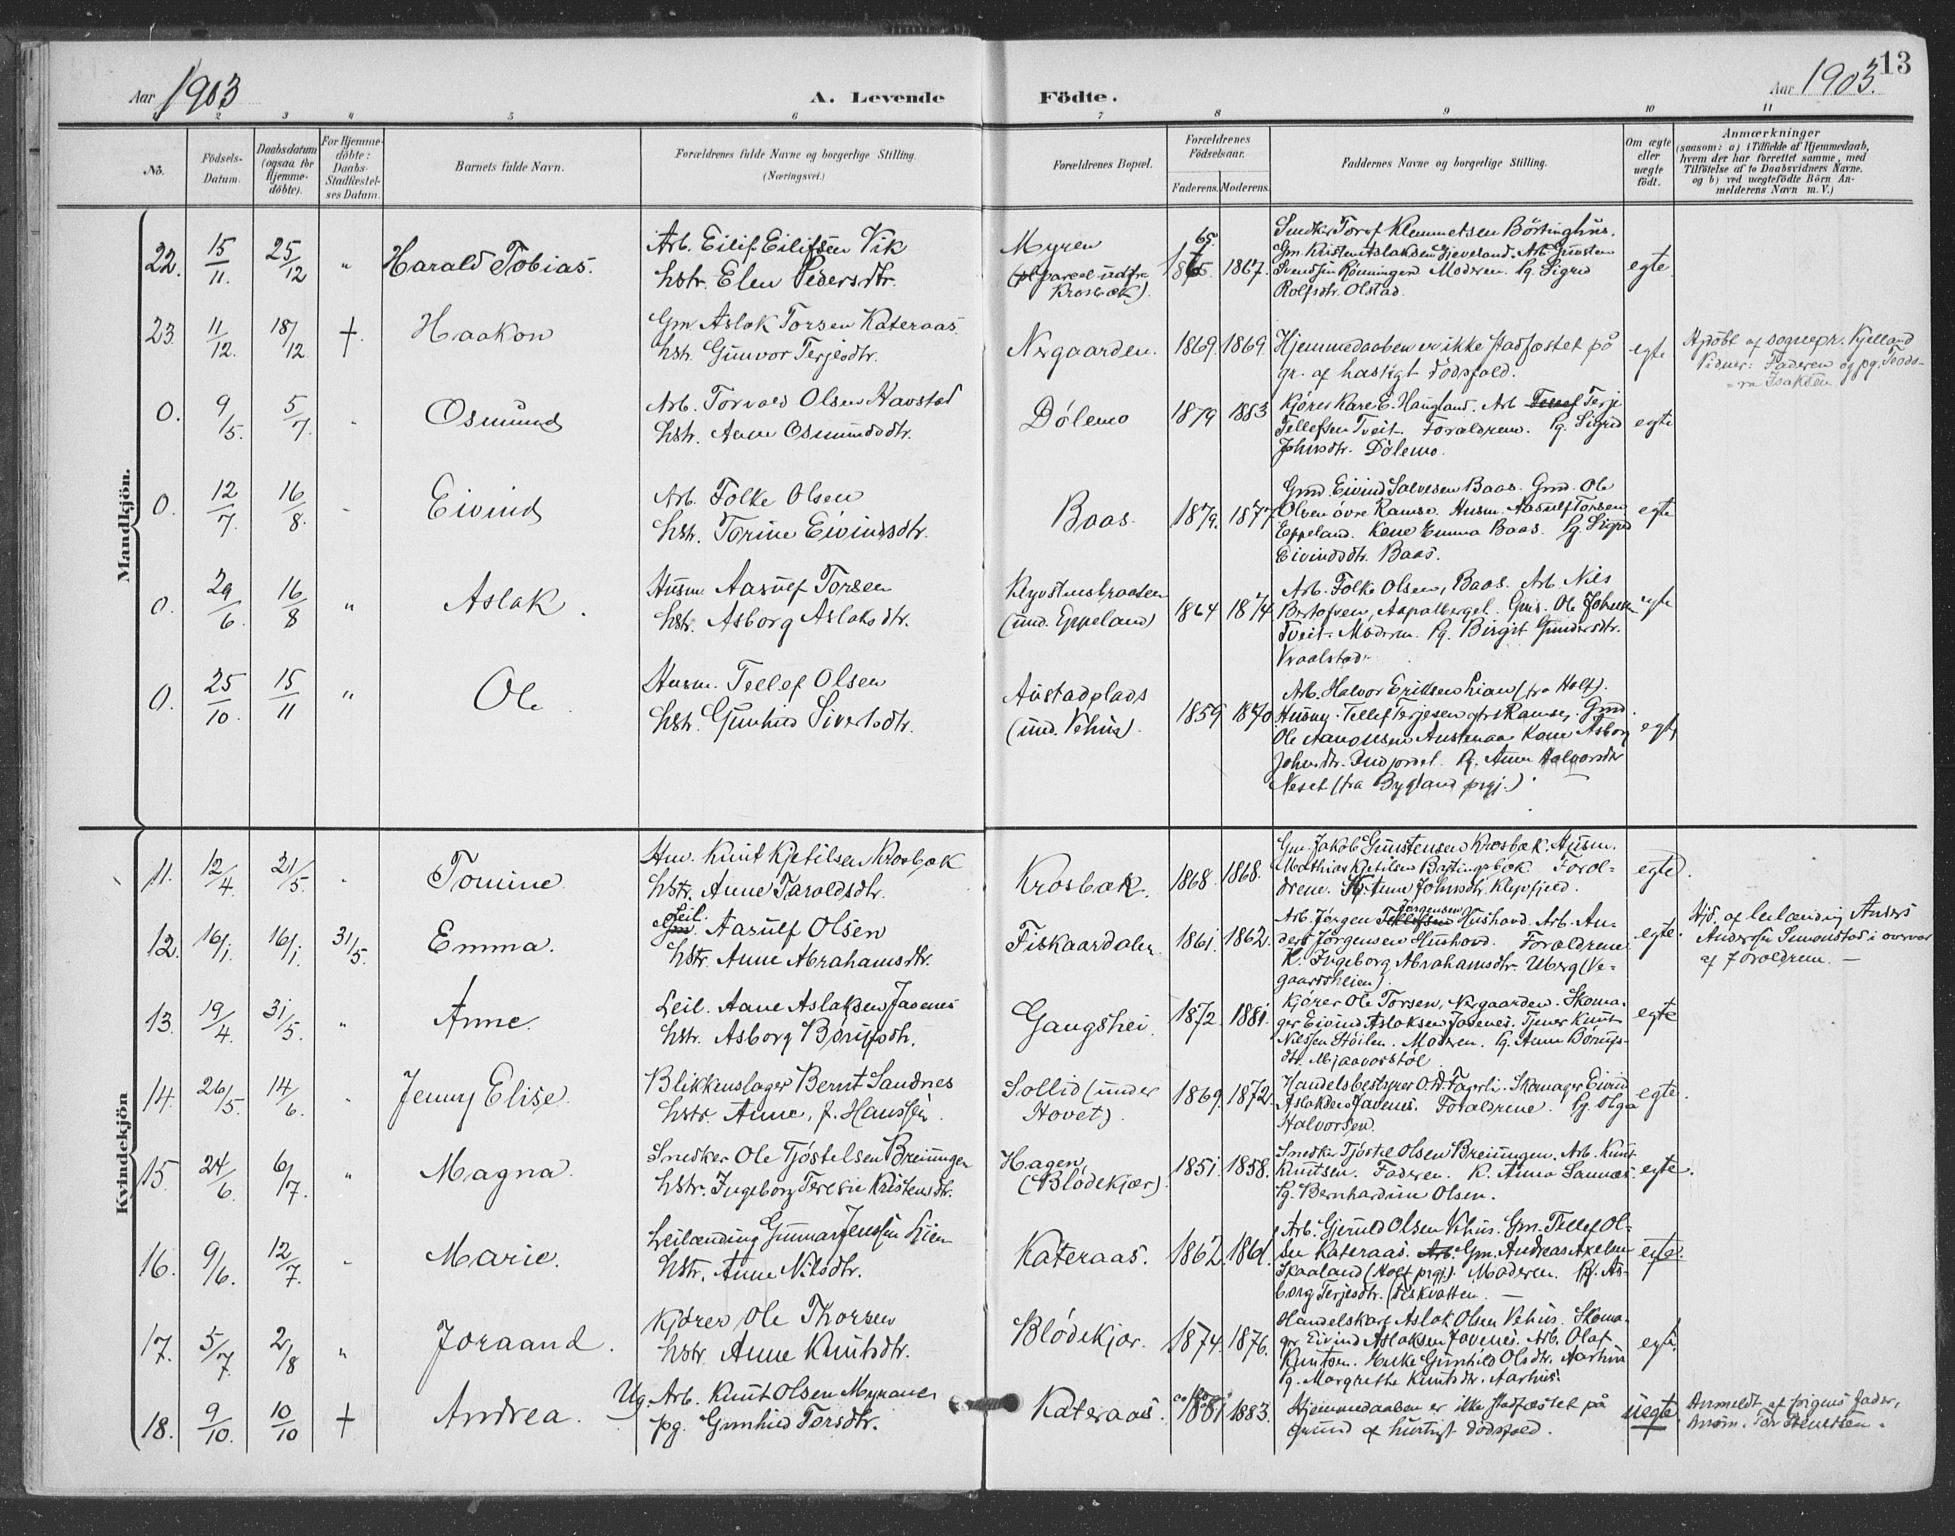 Aar 1903
A. Levende Födte.
Aar 1903.
13
1 2 3 4 5 6 7 8 9 10 11
No.
Födsels-
Datum.
Daabsdatum
(ogsaa for
Hjemme-
döbte).
For Hjemme-
döbte:
Daabs-
Stadfæstel-
ses Datum
Barnets fulde Navn.
Forældrenes fulde Navne og borgerlige Stilling
(Næringsvei.)
Forældrenes Bopæl.
Forældrenes
Födselsaar.
Faderens. Moderens.
Faddernes Navne og borgerlige Stilling.
Om ægte
eller
uægte
födt.
Anmærkninger
(saasom: a) i Tilfælde af Hjemmedaab,
hvem der har forrettet samme, med
Tilföielse af to Daabsvidners Navne,
og b) ved uægtefödte Börn An-
melderens Navn m. V.)
Mandkjön.
22. 15/11. 25/12 " Harald Tobias.
Arb. Eilif Eilifsen Vik
hstr. Elen Pedersdtr.
Myren
(parcel udfra
Krosbæk).
65
1867.
Snedker Torof Klemmetsen Börtinghus.
Gm Kristen Aslaksen Gjeveland. Arb. Gunsten
Svendsen Rønningen. Moderen. Pg. Sigrid
Rolfsdtr. Olstad.
egte
23. 11/12. 18/12. + Haakon
Gm. Aslak Torsen Kateraas.
hstr. Gunvor Terjesdtr.
Nergaarden. 1869. 1869.
Hjemmedaaben er ikke stadfæstet på
gr. af hastigt dödsfald.
egte
Hjdöbt af sognepr. Kjelland
Vidner: Faderen og pg. Teodo-
ra Isaksen
0. 9/5. 5/7. " Osmund
Arb. Torvald Olsen Havstad
hstr. Anne Osmundsdtr.
Dölemo 1879 1883
Kjører Kare E. Haugland. Arb. Terje
Tellefsen Tveit. Foraldrene. Pg. Sigrid
Johnsdtr. Dölemo.
egte
0. 12/7. 16/8. " Eivind
Arb. Folke Olsen
hstr. Torine Eivindsdtr.
Baas. 1879. 1877
Gmd. Eivind Salvesen Baas. Gmd. Ole
Olsen övre Ramse. Husm. Aasulf Torsen
Eppeland. Kone Emma Baas. Pg. Sigrid
Eivindsdtr. Baas.
egte
0. 29/6. 16/8 " Aslak.
Husm. Aasulf Torsen
hstr. Asborg Aslaksdtr.
(und. Eppeland) 1864 1874
Arb. Folke Olsen, Baas. Arb. Nils
Ole Johnsen
Tveit. Moderen. Pg. Birgit Gundersdtr.
Vraalstad.
egte
0. 25/10. 15/11 " Ole
Husm. Tellef Olsen
hstr. Gunhild Sivertsdtr.
Austadplads
(und. Vehus). 1859 1870.
Arb. Halvor Eriksen Lian (fra Holt).
Husmg. Tellef Terjesen Ramse, Gmd.
Ole Aanonsen Austenaa Kone Asborg
Johnsdtr. Pg. Anne Halvorsdtr
Neset (fra Bygland prgj.)
egte
Kvindekjön
11. 12/4. 21/5. " Tomine
Hm. Knut Kjetilsen Krosbæk
hstr. Anne Taraldsdtr.
Krosbæk. 1868. 1868.
Gm. Jakob Gunstensen Krosbæk. Husm.
Mathias Kjetilsen Foræl-
drene. Anne Johnsdtr. Klepfjeld.
egte.
12. 16/1. 16/1. 31/5. Emma.
Leil.
Gm. Aasulf Olsen
hstr. Anne Abrahamsdtr.
Fiskaardalen 1861. 1862.
Jørgensen
Arb. Jørgen Tellefsen Hushovd. Arb. An-
ders Jørgensen Hushovd. Foraldrene
K. Ingeborg Abrahamsdtr. Uberg (Ve-
gaardsheien).
egte.
Hjd. af leilænding Anders
Andersen Simonstad i overvær
af Foraldrene. —
13. 19/4. 31/5. " Anne.
Leil. Aane Aslaksen Javenes
hstr. Asborg Börufsdtr.
Gangshei. 1872. 1881.
Kjører Ole Torsen, Nergaarden. Skoma-
ger Eivind Aslaksen Javenes. Tjener Knut
Nilssen Stöilen. Moderen. Pg. Anne Börufs-
dtr. Mjaavasstöl
egte
14. 26/5. 14/6. " Jenny Elise.
Blikkenslager Bernt Sandnes
hstr. Anne, f. Hanssen.
Sollid (under
Hovet). 1869. 1872.
Handelsbestyrer O. A. Fagerli. Skomager Eivind
Aslaksen Javenes. Foraldrene. Pg. Olga
Halvorsen.
egte.
15. 24/6. 6/7. " Magna.
Snedker Ole Tjöstelsen Breiungen
hstr. Ingeborg Teresie Kristensdtr.
Hagen
(Blödekjær). 1851. 1858.
Snedker Tjöstel Olsen Breiungen. Arb. Knut
Knutsen. Faderen. K. Anna Sannæs.
Pg. Bernhardine Olsen.
egte.
16. 9/6. 12/7. " Marie.
Leilænding Gunnar Jenssen Lien
hstr. Anne Nilsdtr.
Kateraas. 1862. 1861.
Arb. Gjeruld Olsen Vehus. Gm. Tellef Ol-
sen Kateraas. Arb. Gm. Andreas Axelsen
Skaaland (Holt prgj.). Moderen. Pg. As-
borg Terjesdtr. Fiskvatten. —
egte.
17. 5/7. 2/8 " Joraand.
Kjører Ole Thorsen
hstr. Anne Knutsdtr.
Blödekjær. 1874. 1876.
Handelskar Aslak Olsen Vehus. Skoma-
ger Eivind Aslaksen Javenes. Arb. Olaf
Knutsen. Enke Gunhild Olsdtr. Aarhus
Pg. Margrethe Knutsdtr. Aarhus.
egte.
18. 9/10. 10/10 + Andrea.
Ug. Arb. Knut Olsen Myrane
pg. Gunhild Torsdtr.
Kateraas. 1881 1883.
Hjemmedaaben er ikke stadfæstet på
grund af hurtigt dödsfald.
uegte
Anmeldt af pigens fader,
Tor Stensen.